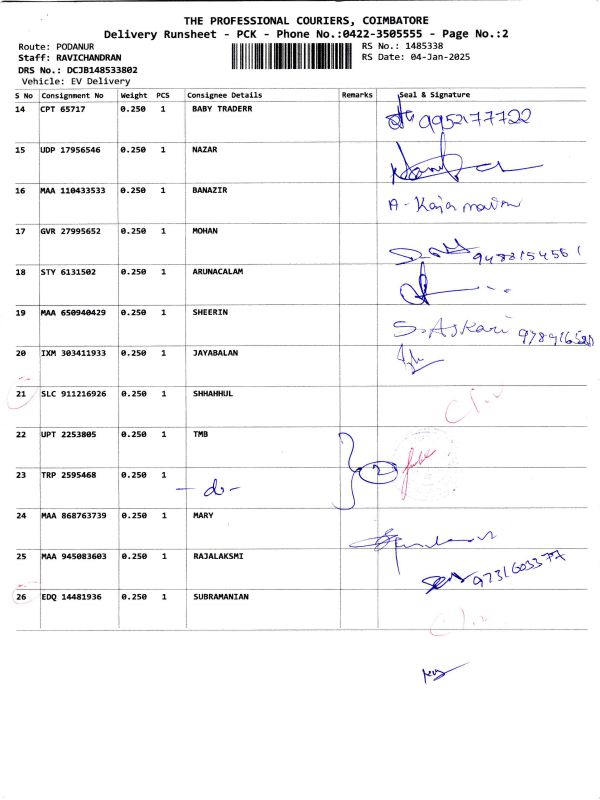 THE PROFESSIONAL COURIERS, COIMBATORE
Delivery Runsheet - PCK - Phone No.:0422-3505555 - Page No.:2
Route: PODANUR RS No.: 1485338
Staff: RAVICHANDRAN RS Date: 04-Jan-2025
DRS No.: DCJB148533802
Vehicle: EV Delivery
S No Consignment No Weight PCS Consignee Details Remarks Seal & Signature
14 CPT 65717 0.250 1 BABY TRADERR 9952177722
15 UDP 17956546 0.250 1 NAZAR
16 MAA 110433533 0.250 1 BANAZIR A - Kaja
17 GVR 27995652 0.250 1 MOHAN
18 STY 6131502 0.250 1 ARUNACALAM
19 MAA 650940429 0.250 1 SHEERIN S. Askari
20 IXM 303411933 0.250 1 JAYABALAN
21 SLC 911216926 0.250 1 SHHAHHUL
22 UPT 2253805 0.250 1 TMB
23 TRP 2595468 0.250 1 - do - 2
24 MAA 868763739 0.250 1 MARY
25 MAA 945083603 0.250 1 RAJALAKSMI
26 EDQ 14481936 0.250 1 SUBRAMANIAN